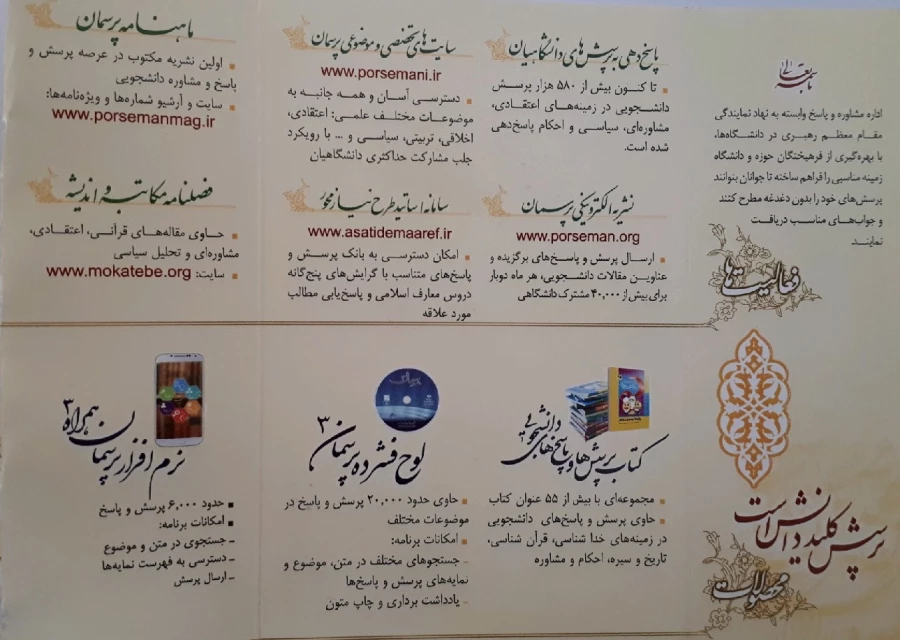 باسمه تعالی
اداره مشاوره و پاسخ وابسته به نهاد نمایندگی
مقام معظم رهبری در دانشگاه‌ها،
با بهره‌گیری از فرهیختگان حوزه و دانشگاه
زمینه مناسبی را فراهم ساخته تا جوانان بتوانند
پرسش‌های خود را بدون دغدغه مطرح کنند
و جواب‌های مناسب دریافت
نمایند.
فعالیت‌ها
پاسخ‌دهی به پرسش‌های دانشگاهیان
تا کنون بیش از ۵۸۰ هزار پرسش
دانشجویی در زمینه‌های اعتقادی،
مشاوره‌ای، سیاسی و احکام پاسخ‌دهی
شده است.
نشریه الکترونیکی پرسمان
www.porseman.org
ارسال پرسش و پاسخ‌های برگزیده و
عناوین مقالات دانشجویی، هر ماه دوبار
برای بیش از ۴۰,۰۰۰ مشترک دانشگاهی
سایت‌های تخصصی و موضوعی پرسمان
www.porsemani.ir
دسترسی آسان و همه جانبه به
موضوعات مختلف علمی: اعتقادی،
اخلاقی، تربیتی، سیاسی و ... با رویکرد
جلب مشارکت حداکثری دانشگاهیان
سامانه اساتید طرح نیاز محور
www.asatidemaaref.ir
امکان دسترسی به بانک پرسش و
پاسخ‌های متناسب با گرایش‌های پنج‌گانه
دروس معارف اسلامی و پاسخ‌یابی مطالب
مورد علاقه
ماهنامه پرسمان
اولین نشریه مکتوب در عرصه پرسش و
پاسخ و مشاوره دانشجویی
سایت و آرشیو شماره‌ها و ویژه‌نامه‌ها:
www.porsemanmag.ir
فصلنامه مکاتبه و اندیشه
حاوی مقاله‌های قرآنی، اعتقادی،
مشاوره‌ای و تحلیل سیاسی
سایت: www.mokatebe.org
پرسش کلید دانش است
محصولات
کتاب پرسش‌ها و پاسخ‌های دانشجویی
مجموعه‌ای با بیش از ۵۵ عنوان کتاب
حاوی پرسش و پاسخ‌های دانشجویی
در زمینه‌های خدا شناسی، قرآن شناسی،
تاریخ و سیره، احکام و مشاوره
لوح فشرده پرسمان ۳
حاوی حدود ۲۰,۰۰۰ پرسش و پاسخ در
موضوعات مختلف
امکانات برنامه:
- جستجوهای مختلف در متن، موضوع و
نمایه‌های پرسش و پاسخ‌ها
- یادداشت برداری و چاپ متون
نرم افزار پرسمان همراه ۳
حدود ۶,۰۰۰ پرسش و پاسخ
امکانات برنامه:
- جستجوی در متن و موضوع
- دسترسی به فهرست نمایه‌ها
- ارسال پرسش